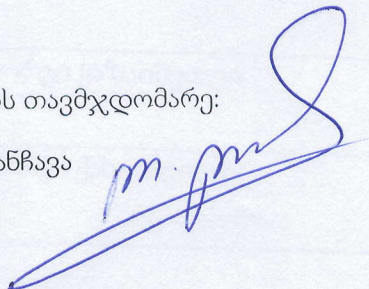 ს თავმჯდომარე:
ანჩავა